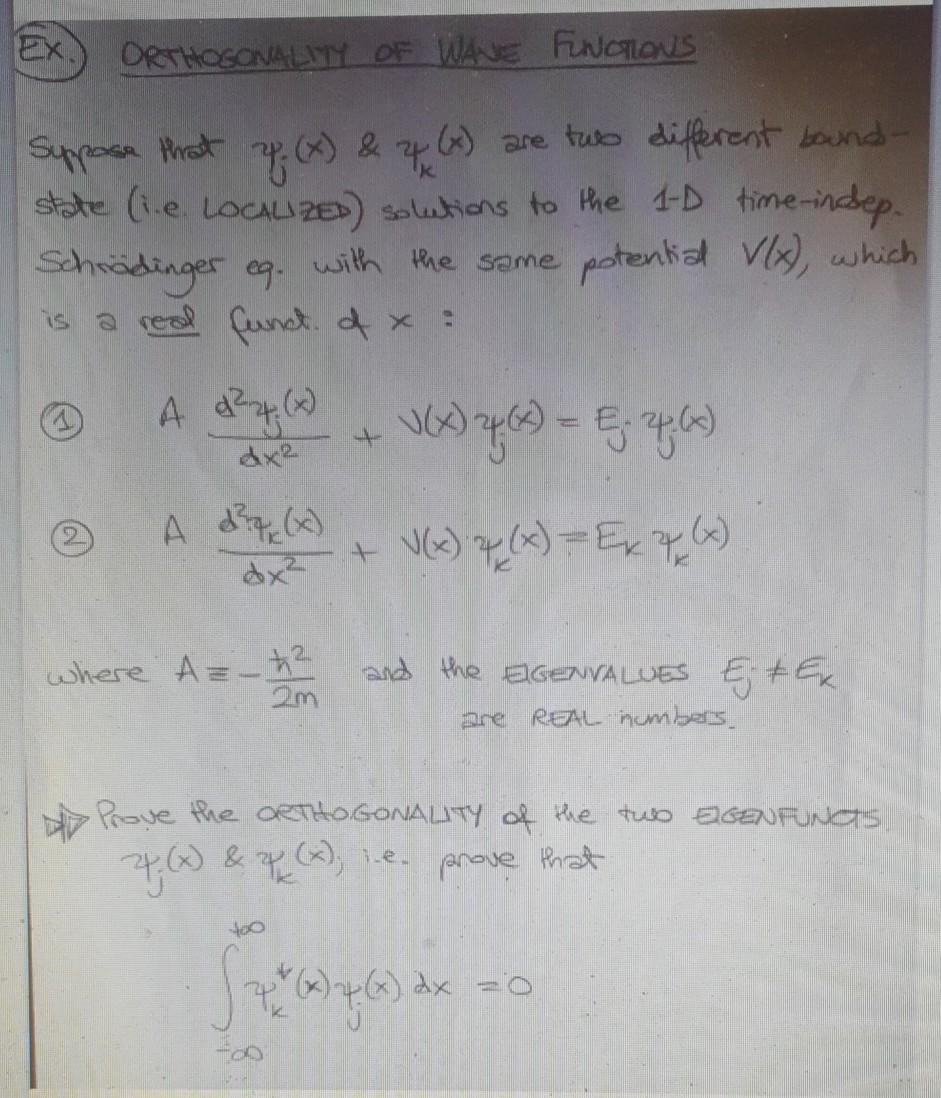 Ex. ORTHOGONALITY OF WAVE FUNCTIONS
Suppose that ψⱼ(x) & ψₖ(x) are two different bound-
state (i.e. LOCALIZED) solutions to the 1-D time-indep.
Schrödinger eq. with the same potential V(x), which
is a real funct. of x :
① A d²ψⱼ(x)/dx² + V(x) ψⱼ(x) = Eⱼ ψⱼ(x)
② A d²ψₖ(x)/dx² + V(x) ψₖ(x) = Eₖ ψₖ(x)
where A ≡ -ℏ²/2m and the EIGENVALUES Eⱼ ≠ Eₖ
are REAL numbers.
Prove the ORTHOGONALITY of the two EIGENFUNCTS
ψⱼ(x) & ψₖ(x), i.e. prove that
∫₋∞⁺∞ ψₖ*(x) ψⱼ(x) dx = 0